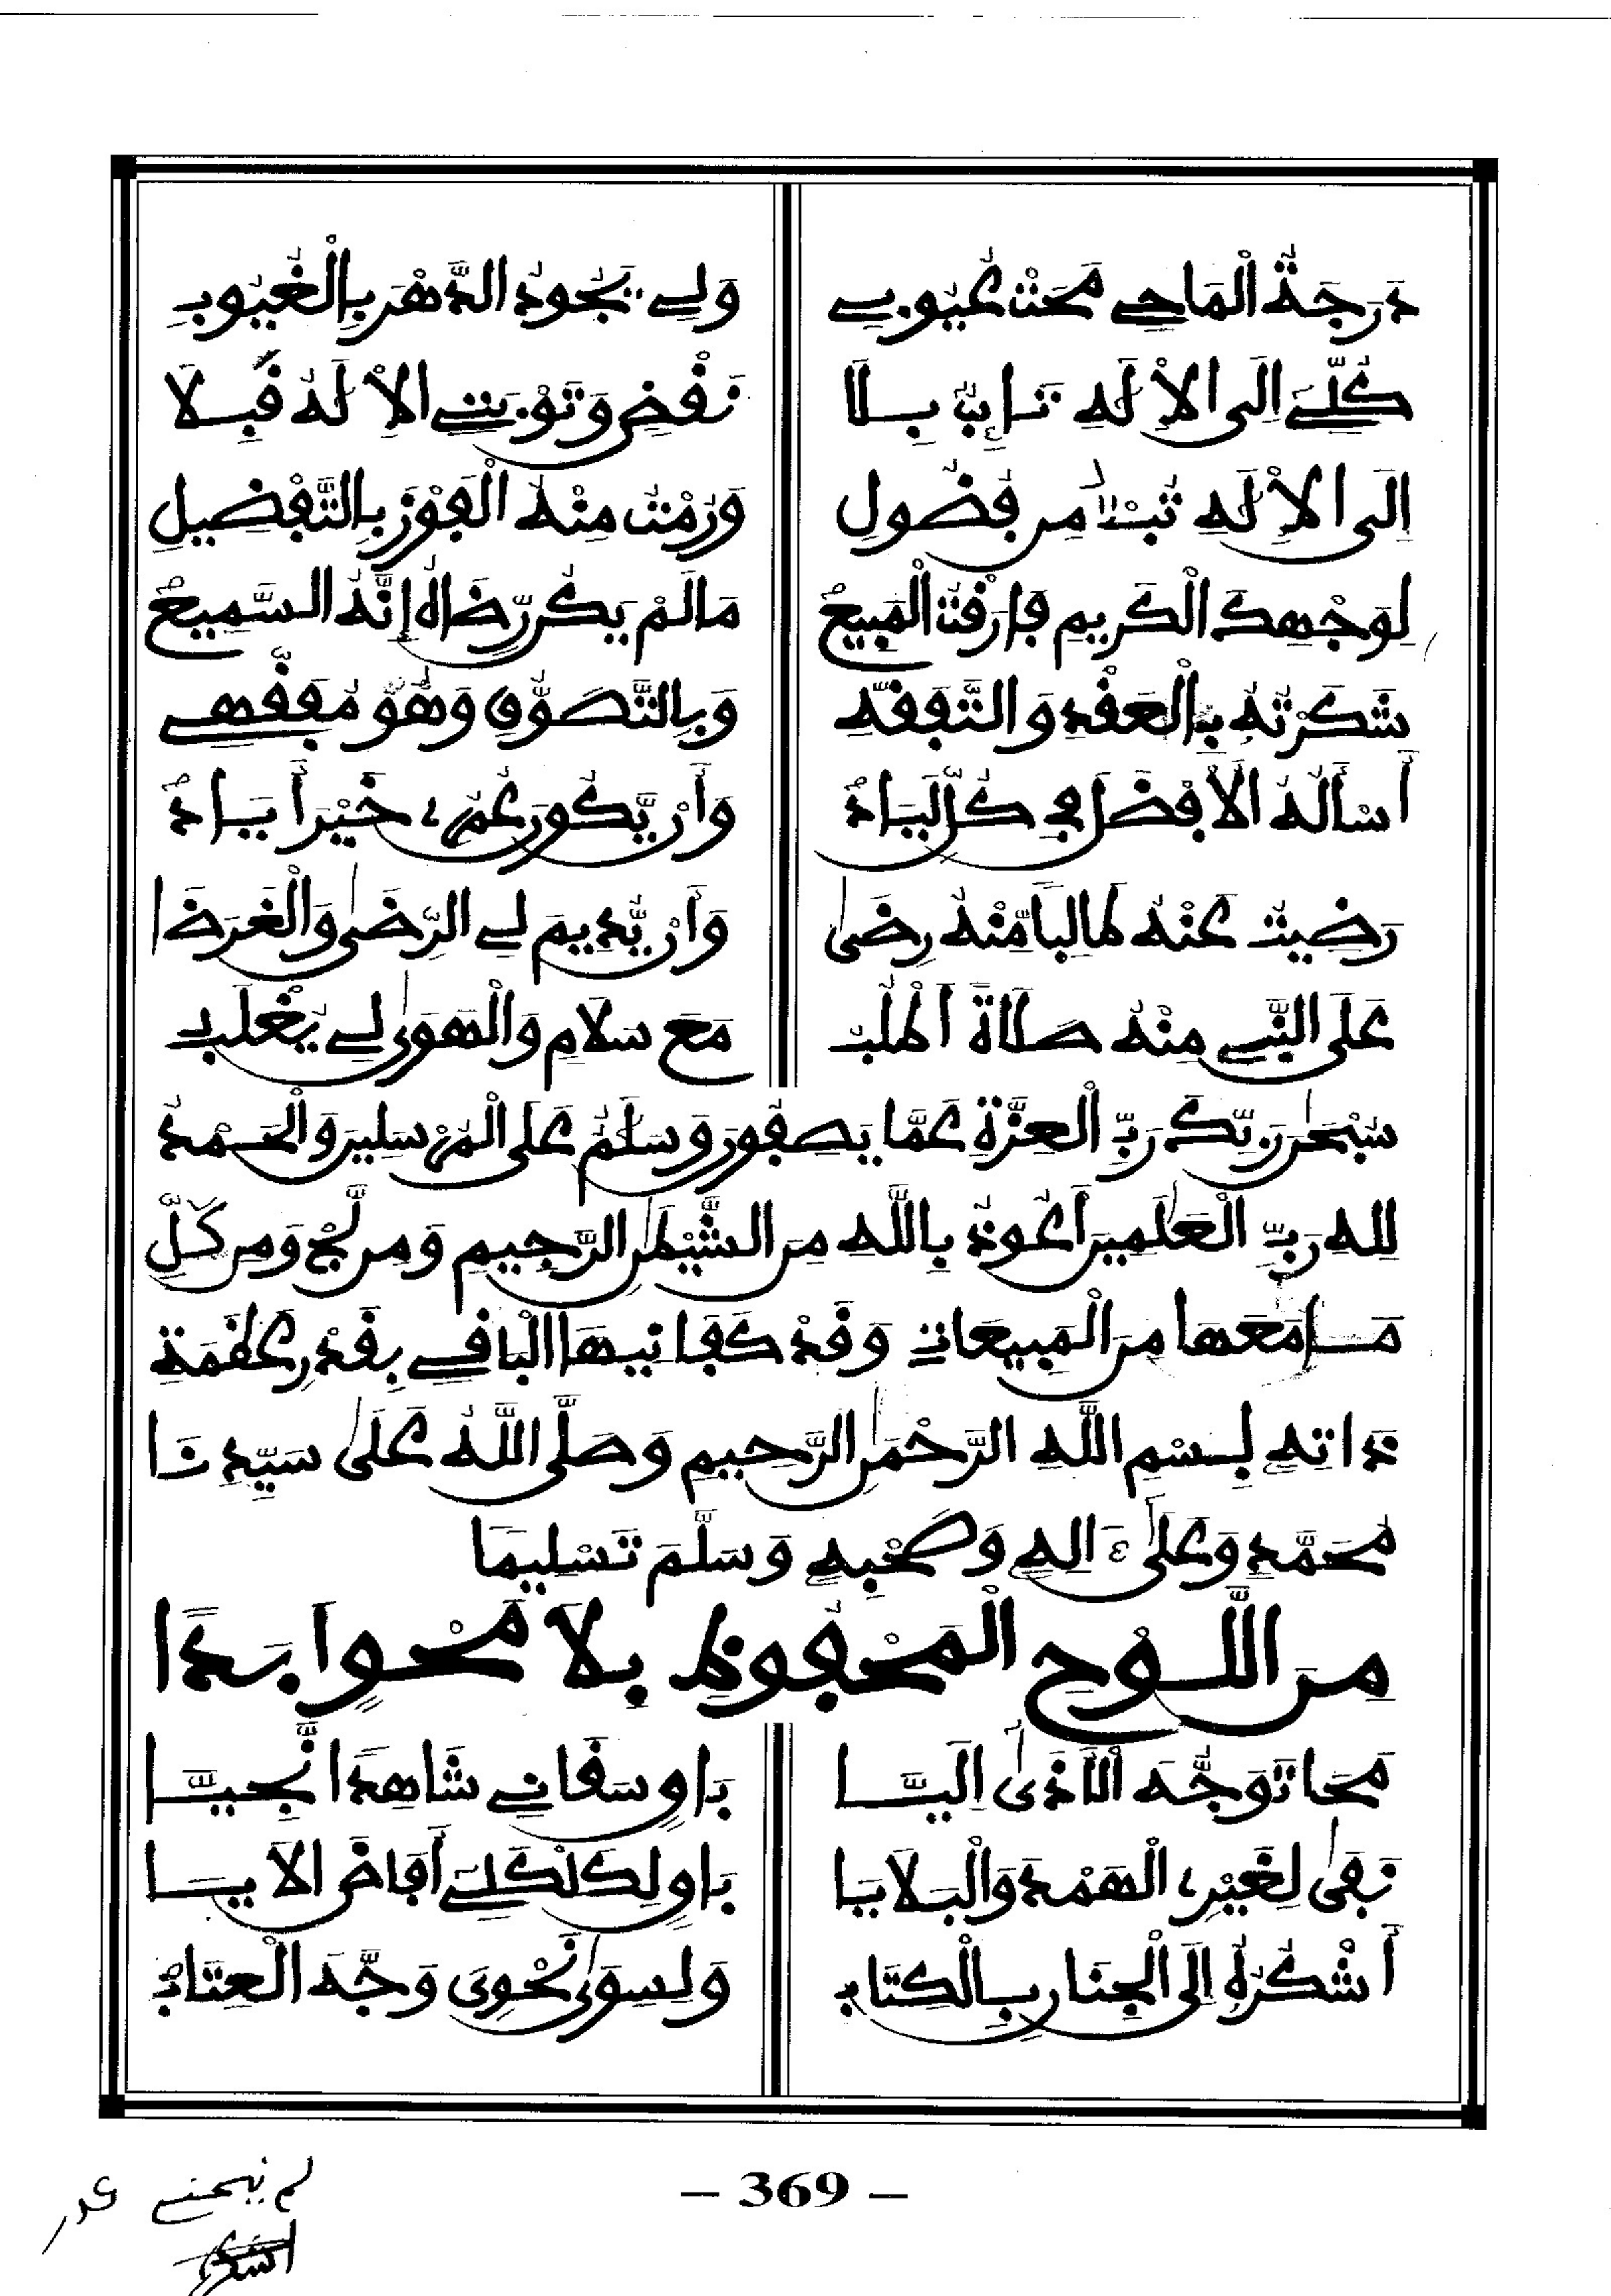 دَرَجَةُ الْمَاحِے مَحَتْ عُيُوبِے وَلِے يَجُودُ الدَّهْرَ بِالْغُيُوبِ
كُلِّے اِلَى الاِلَهِ تَائِبٌ بِلَا نَقْضٍ وَتَوْبَتِے الاِلَهُ قَبِلَا
اِلَى الاِلَهِ تُبْتُ مِن فُضُولِ وَرُمْتُ مِنْهُ الْفَوْزَ بِالتَّفْضِيلِ
لِوَجْهِكَ الْكَرِيمِ فَارَقْتُ الْمَبِيعْ مَالَمْ يَكُن رِّضَاهُ إِنَّهُ السَّمِيعْ
شَكَرْتُهُ بِالْعَقْدِ وَالتَّفَقُّهِ وَبِالتَّصَوُّفِ وَهُوَ مُفَقِّهِے
أَسْأَلُهُ الأَفْضَلَ فِے كُلِّ لَبَادْ وَأَنْ يَّكُونَ عُمْرِے خَيْراً يَبَادْ
رَضِيتُ عَنْهُ طَالِباً مِّنْهُ رِضَى وَأَنْ يُّدِيمَ لِے الرِّضَى وَالْغَرَضَا
عَلَى النَّبِے مِنْهُ صَلَاةً أَطْلُبْ مَعَ سَلَامٍ وَالْهَوَى لِے يُغْلَبُ
سُبْحَنَ رَبِّكَ رَبِّ الْعِزَّةِ عَمَّا يَصِفُونَ وَسَلَمٌ عَلَى الْمُرْسَلِينَ وَالْحَمْدُ
لِلهِ رَبِّ الْعَلَمِينَ أَعُوذُ بِاللَّهِ مِنَ الشَّيْطَنِ الرَّجِيمِ وَمِن لُّجٍ وَمِن كُلِّ
مَا مَعَهَا مِنَ الْمَبِيعَاتِ وَقَدْ كَفَانِيهَا الْبَاقِے بِقَدْرِ عَظَمَةِ
ذَاتِهِ بِسْمِ اللَّهِ الرَّحْمَنِ الرَّحِيمِ وَصَلَّى اللَّهُ عَلَى سَيِّدِنَا
مُحَمَّدٍ وَعَلَى ءَالِهِ وَصَحْبِهِ وَسَلَّمَ تَسْلِيمًا
مِنَ اللَّوْحِ الْمَحْفُوظِ بِلَا مَحْوٍ اَبَدًا
مَحَا تَوَجُّهَ الْأَذَى اِلَيَّا بَاقٍ سَقَانِے شَاهِدًا نَّجِيَّا
نَفَى لِغَيْرِے الْهَمْدَ وَالْبَلَايَا بَاقٍ لِكُلِّكُلِّے أَفَاضَ الَايَا
أَشْكُرُهُ إِلَى الْجِنَانِ بِالْكِتَابْ وَلِسِوَى نَحْوِىَ وَجَّهَ الْعِتَابْ
– 369 –
لم